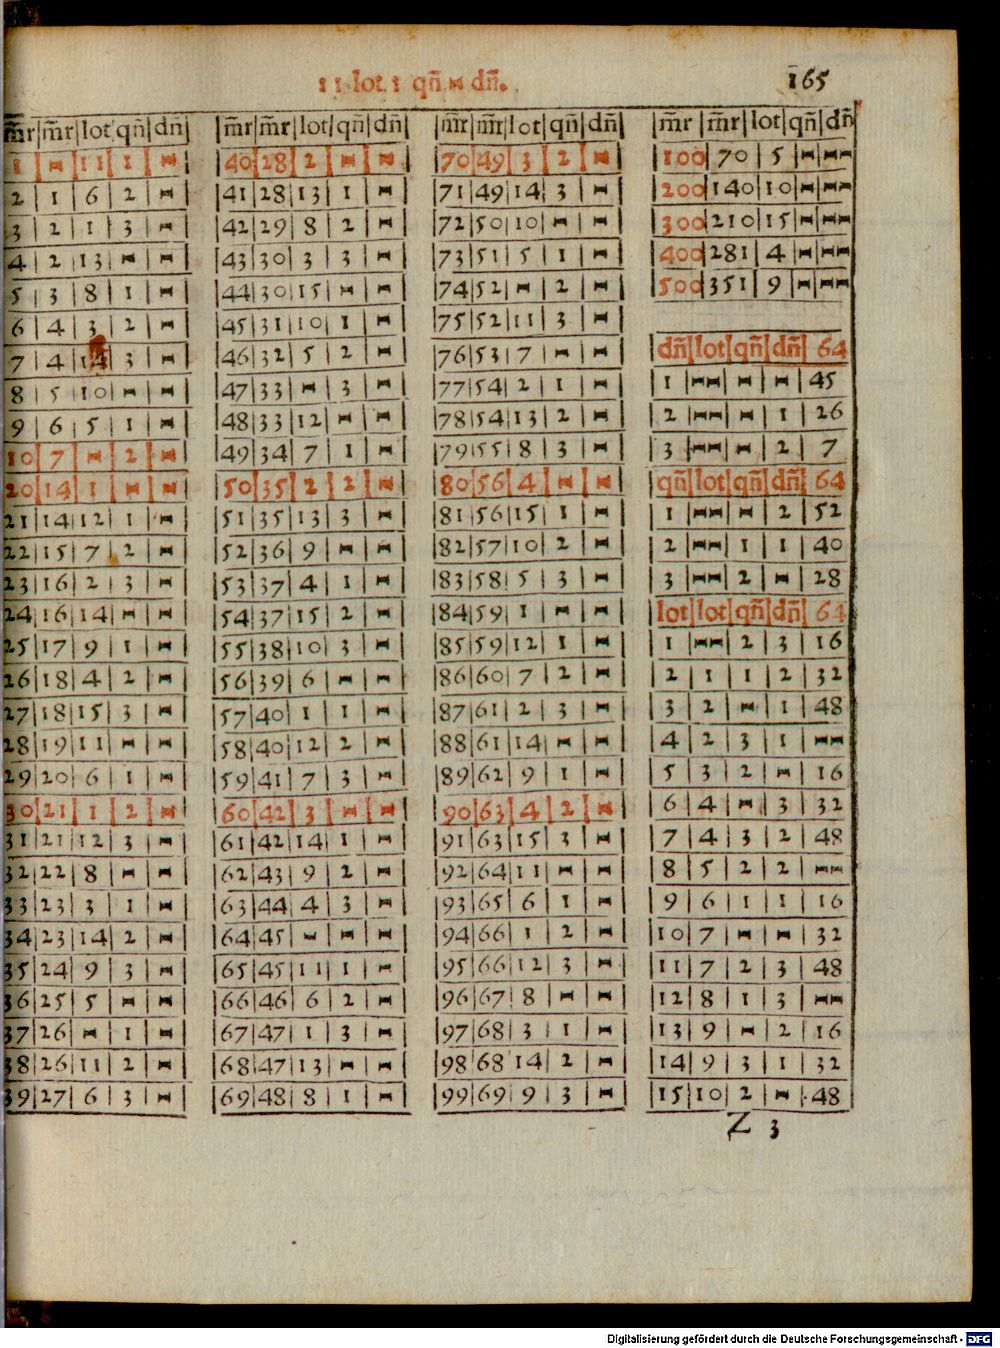 11 lot 1 qñ ⋈ dñ.
165
m̄r|m̄r|lot|qñ|dñ
1|⋈|11|1|⋈
2|1|6|2|⋈
3|2|1|3|⋈
4|2|13|⋈|⋈
5|3|8|1|⋈
6|4|3|2|⋈
7|4|14|3|⋈
8|5|10|⋈|⋈
9|6|5|1|⋈
10|7|⋈|2|⋈
20|14|1|⋈|⋈
21|14|12|1|⋈
22|15|7|2|⋈
23|16|2|3|⋈
24|16|14|⋈|⋈
25|17|9|1|⋈
26|18|4|2|⋈
27|18|15|3|⋈
28|19|11|⋈|⋈
29|20|6|1|⋈
30|21|1|2|⋈
31|21|12|3|⋈
32|22|8|⋈|⋈
33|23|3|1|⋈
34|23|14|2|⋈
35|24|9|3|⋈
36|25|5|⋈|⋈
37|26|⋈|1|⋈
38|26|11|2|⋈
39|27|6|3|⋈
m̄r|m̄r|lot|qñ|dñ
40|28|2|⋈|⋈
41|28|13|1|⋈
42|29|8|2|⋈
43|30|3|3|⋈
44|30|15|⋈|⋈
45|31|10|1|⋈
46|32|5|2|⋈
47|33|⋈|3|⋈
48|33|12|⋈|⋈
49|34|7|1|⋈
50|35|2|2|⋈
51|35|13|3|⋈
52|36|9|⋈|⋈
53|37|4|1|⋈
54|37|15|2|⋈
55|38|10|3|⋈
56|39|6|⋈|⋈
57|40|1|1|⋈
58|40|12|2|⋈
59|41|7|3|⋈
60|42|3|⋈|⋈
61|42|14|1|⋈
62|43|9|2|⋈
63|44|4|3|⋈
64|45|⋈|⋈|⋈
65|45|11|1|⋈
66|46|6|2|⋈
67|47|1|3|⋈
68|47|13|⋈|⋈
69|48|8|1|⋈
m̄r|m̄r|lot|qñ|dñ
70|49|3|2|⋈
71|49|14|3|⋈
72|50|10|⋈|⋈
73|51|5|1|⋈
74|52|⋈|2|⋈
75|52|11|3|⋈
76|53|7|⋈|⋈
77|54|2|1|⋈
78|54|13|2|⋈
79|55|8|3|⋈
80|56|4|⋈|⋈
81|56|15|1|⋈
82|57|10|2|⋈
83|58|5|3|⋈
84|59|1|⋈|⋈
85|59|12|1|⋈
86|60|7|2|⋈
87|61|2|3|⋈
88|61|14|⋈|⋈
89|62|9|1|⋈
90|63|4|2|⋈
91|63|15|3|⋈
92|64|11|⋈|⋈
93|65|6|1|⋈
94|66|1|2|⋈
95|66|12|3|⋈
96|67|8|⋈|⋈
97|68|3|1|⋈
98|68|14|2|⋈
99|69|9|3|⋈
m̄r|m̄r|lot|qñ|dñ
100|70|5|⋈|⋈⋈
200|140|10|⋈|⋈⋈
300|210|15|⋈|⋈⋈
400|281|4|⋈|⋈⋈
500|351|9|⋈|⋈⋈
dñ|lot|qñ|dñ|64
1|⋈⋈|⋈|⋈|45
2|⋈⋈|⋈|1|26
3|⋈⋈|⋈|2|7
qñ|lot|qñ|dñ|64
1|⋈⋈|⋈|2|52
2|⋈⋈|1|1|40
3|⋈⋈|2|⋈|28
lot|lot|qñ|dñ|64
1|⋈⋈|2|3|16
2|1|1|2|32
3|2|⋈|1|48
4|2|3|1|⋈⋈
5|3|2|⋈|16
6|4|⋈|3|32
7|4|3|2|48
8|5|2|2|⋈⋈
9|6|1|1|16
10|7|⋈|⋈|32
11|7|2|3|48
12|8|1|3|⋈⋈
13|9|⋈|2|16
14|9|3|1|32
15|10|2|⋈|48
Z 3
Digitalisierung gefördert durch die Deutsche Forschungsgemeinschaft - DFG